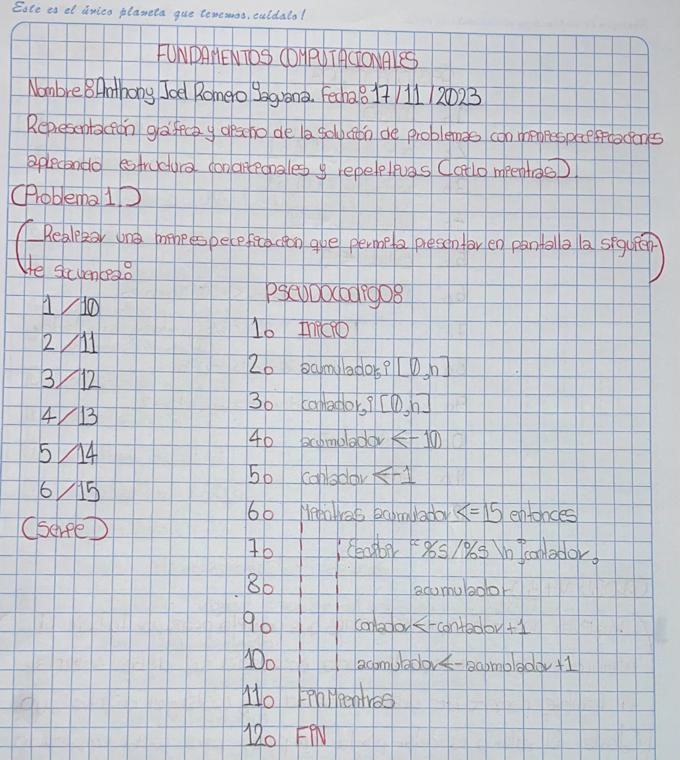 Este es el único planeta que tenemos, cuídalo!
FUNDAMENTOS COMPUTACIONALES
Nombre: Anthony Joel Romero Yaguana. Fecha: 17/11/2023
Representación gráfica y diseño de la solución de problemas con miniespecificaciones
aplicando estructura condicionales y repetitivas (ciclo mientras).
(Problema 1.)
(-Realizar una miniespecificación que permita presentar en pantalla la siguien-
te secuencia:
1/10
2/11
3/12
4/13
5/14
6/15
(Serie)
Pseudocodigo:
1. Inicio
2. acumulador, ? [0,n]
3. contador, ? [0,n]
4. acumulador <- 10
5. contador <- 1
6. Mientras acumulador <= 15 entonces
7. Escribir "%s/%s \n", contador,
8. acumulador
9. contador <- contador + 1
10. acumulador <- acumulador + 1
11. FinMientras
12. FIN